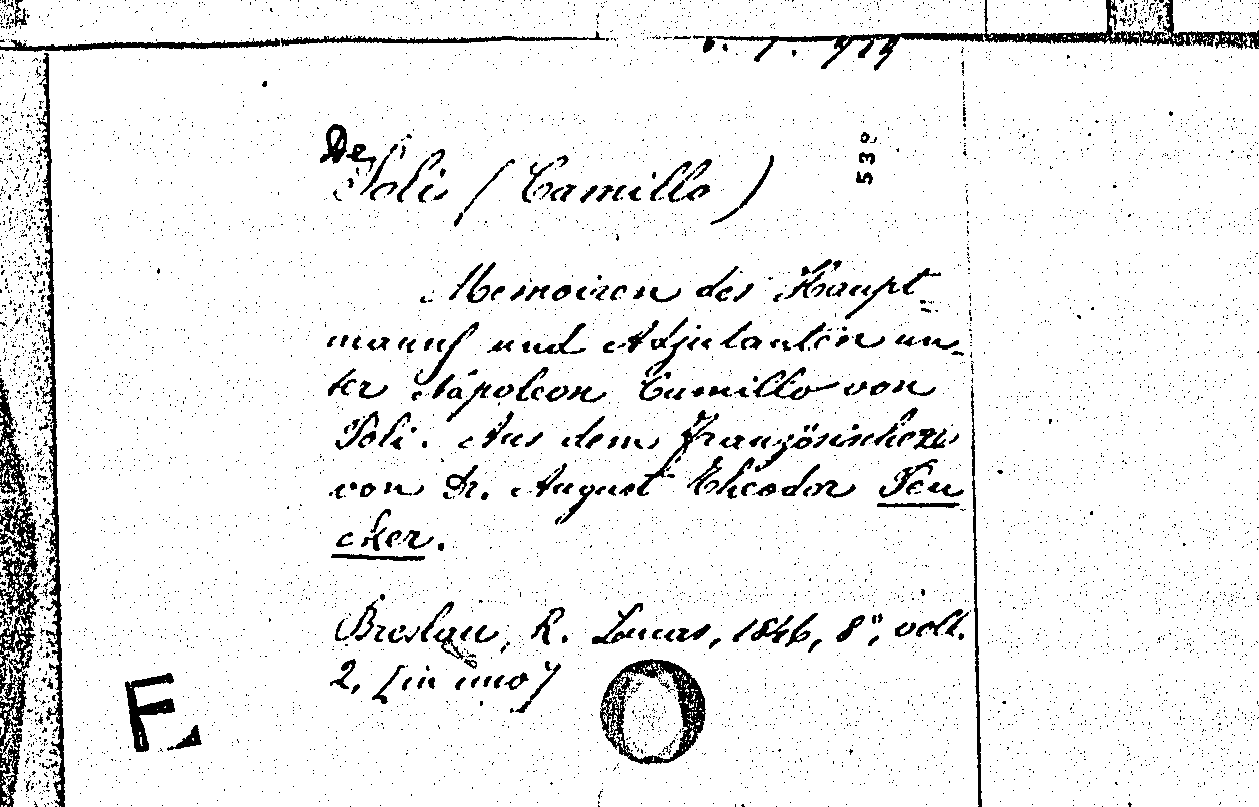 De
Poli (Camillo)
538
Memoiren des Haupt-
manns und Adjutanten un-
ter Napoleon Camillo von
Poli. Aus dem Französischen
von Dr. August Theodor Peu
cker.
Breslau, R. Lucas, 1846, 8°, voll.
2, [in uno]
F